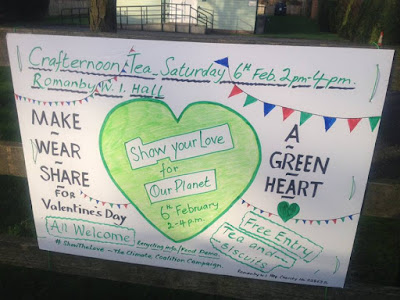 Crafternoon Tea Saturday 6th Feb. 2pm-4pm.
Romanby W. I. Hall
MAKE
~
WEAR
~
SHARE
FOR
Valentine's Day
Show your Love
for
Our Planet
6th February
2-4 p.m.
A
~
GREEN
~
HEART
All Welcome
Recycling info/Food Demo
Free Entry
Tea and
Biscuits
# ShowTheLove ~ The Climate Coalition Campaign.
Romanby W.I. Reg Charity no.